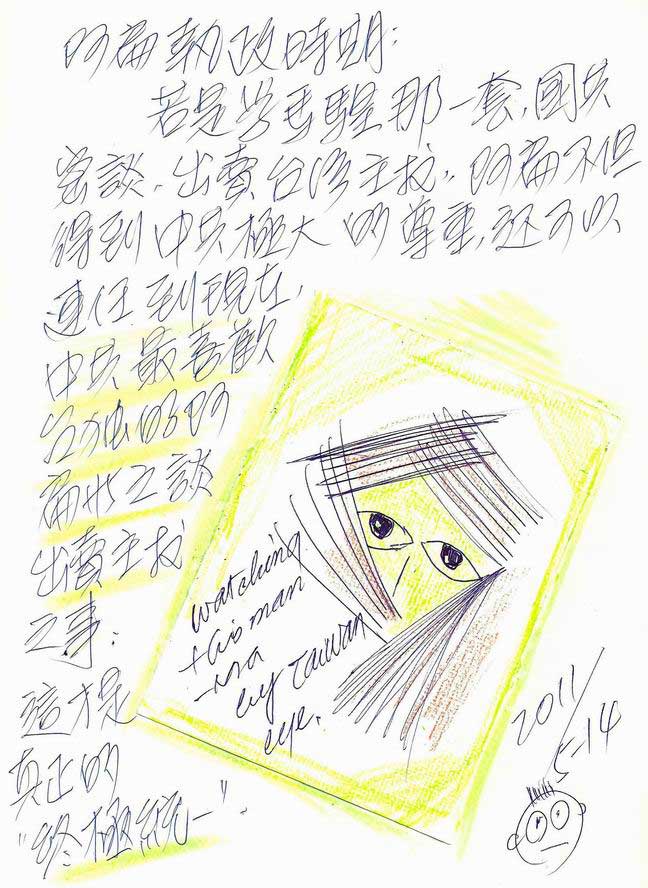 阿扁執政時期:
若是学馬騜那一套,國共
會談,出賣台湾主权,阿扁不但
得到中共極大的尊重,还可以
連任到現在,
中共最喜歡
台独的阿
扁此之談
出賣主权
之事:
這才是
真正的
"终極統一".
watching
this man
-ma
by Taiwan
eye.
2011/
5-14